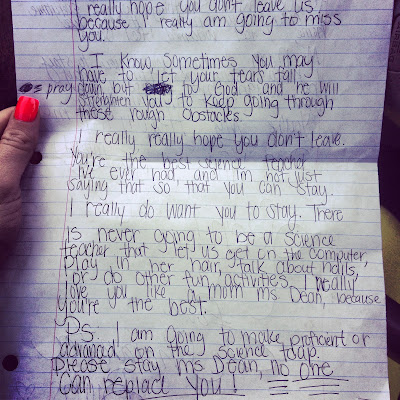 I really hope you don't leave us,
because I really am going to miss
you.
I know sometimes you may
have to let your tears fall
down, but to god and he will
= pray
strengthen you to keep going through
these rough obstacles.
I really really hope you don't leave.
You're the best science teacher
I've ever had and I'm not just
saying that so that you can stay.
I really do want you to stay. There
is never going to be a science
teacher that let us get on the computer,
play in her hair, talk about nails,
or do other fun activities. I really
love you like a mom ms. Dean, because
you're the best.
Ps. I am going to make proficient or
advanced on the science tcap.
please stay ms. Dean, no one
can replace you!